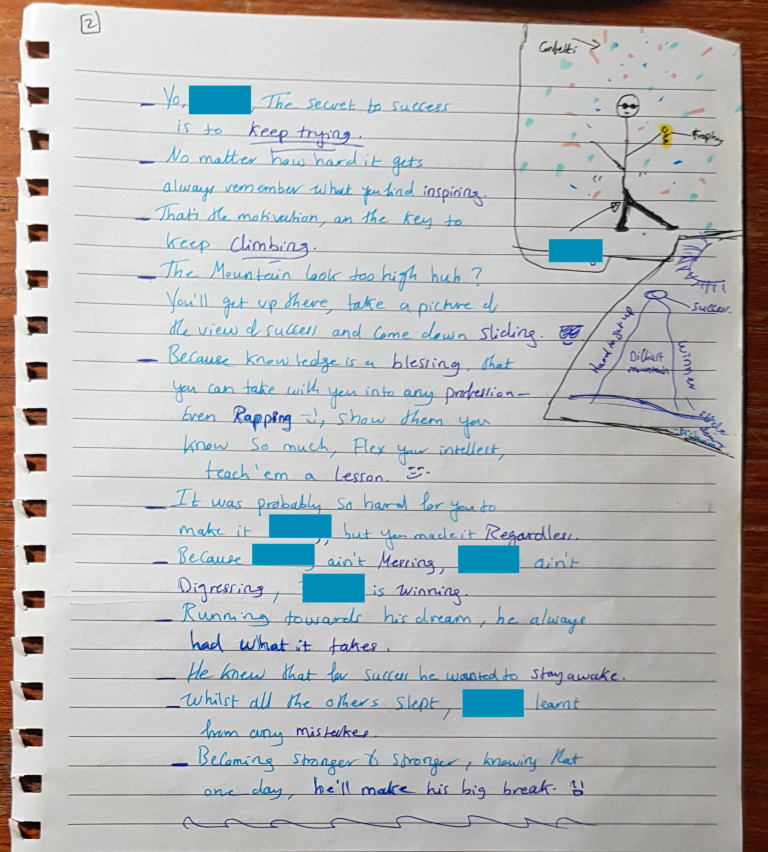 2
Confetti
trophy
- Yo, , The secret to success
is to keep trying.
- No matter how hard it gets
always remember what you find inspiring.
- That's the motivation, an the key to
keep climbing.
- The Mountain look too high huh?
You'll get up there, take a picture of
the view of success and come down sliding.
- Because knowledge is a blessing, that
you can take with you into any profession-
Even Rapping, show them you
know so much, Flex your intellect,
teach 'em a Lesson.
- It was probably so hard for you to
make it , but you made it Regardless.
- Because ain't Messing, ain't
Digressing, is winning.
- Running towards his dream, he always
had what it takes.
- He knew that for success he wanted to stay awake.
- Whilst all the others slept, learnt
from any mistakes.
- Becoming stronger & stronger, knowing that
one day, he'll make his big break.
success.
Hard to get up
Difficult
mountain
winner